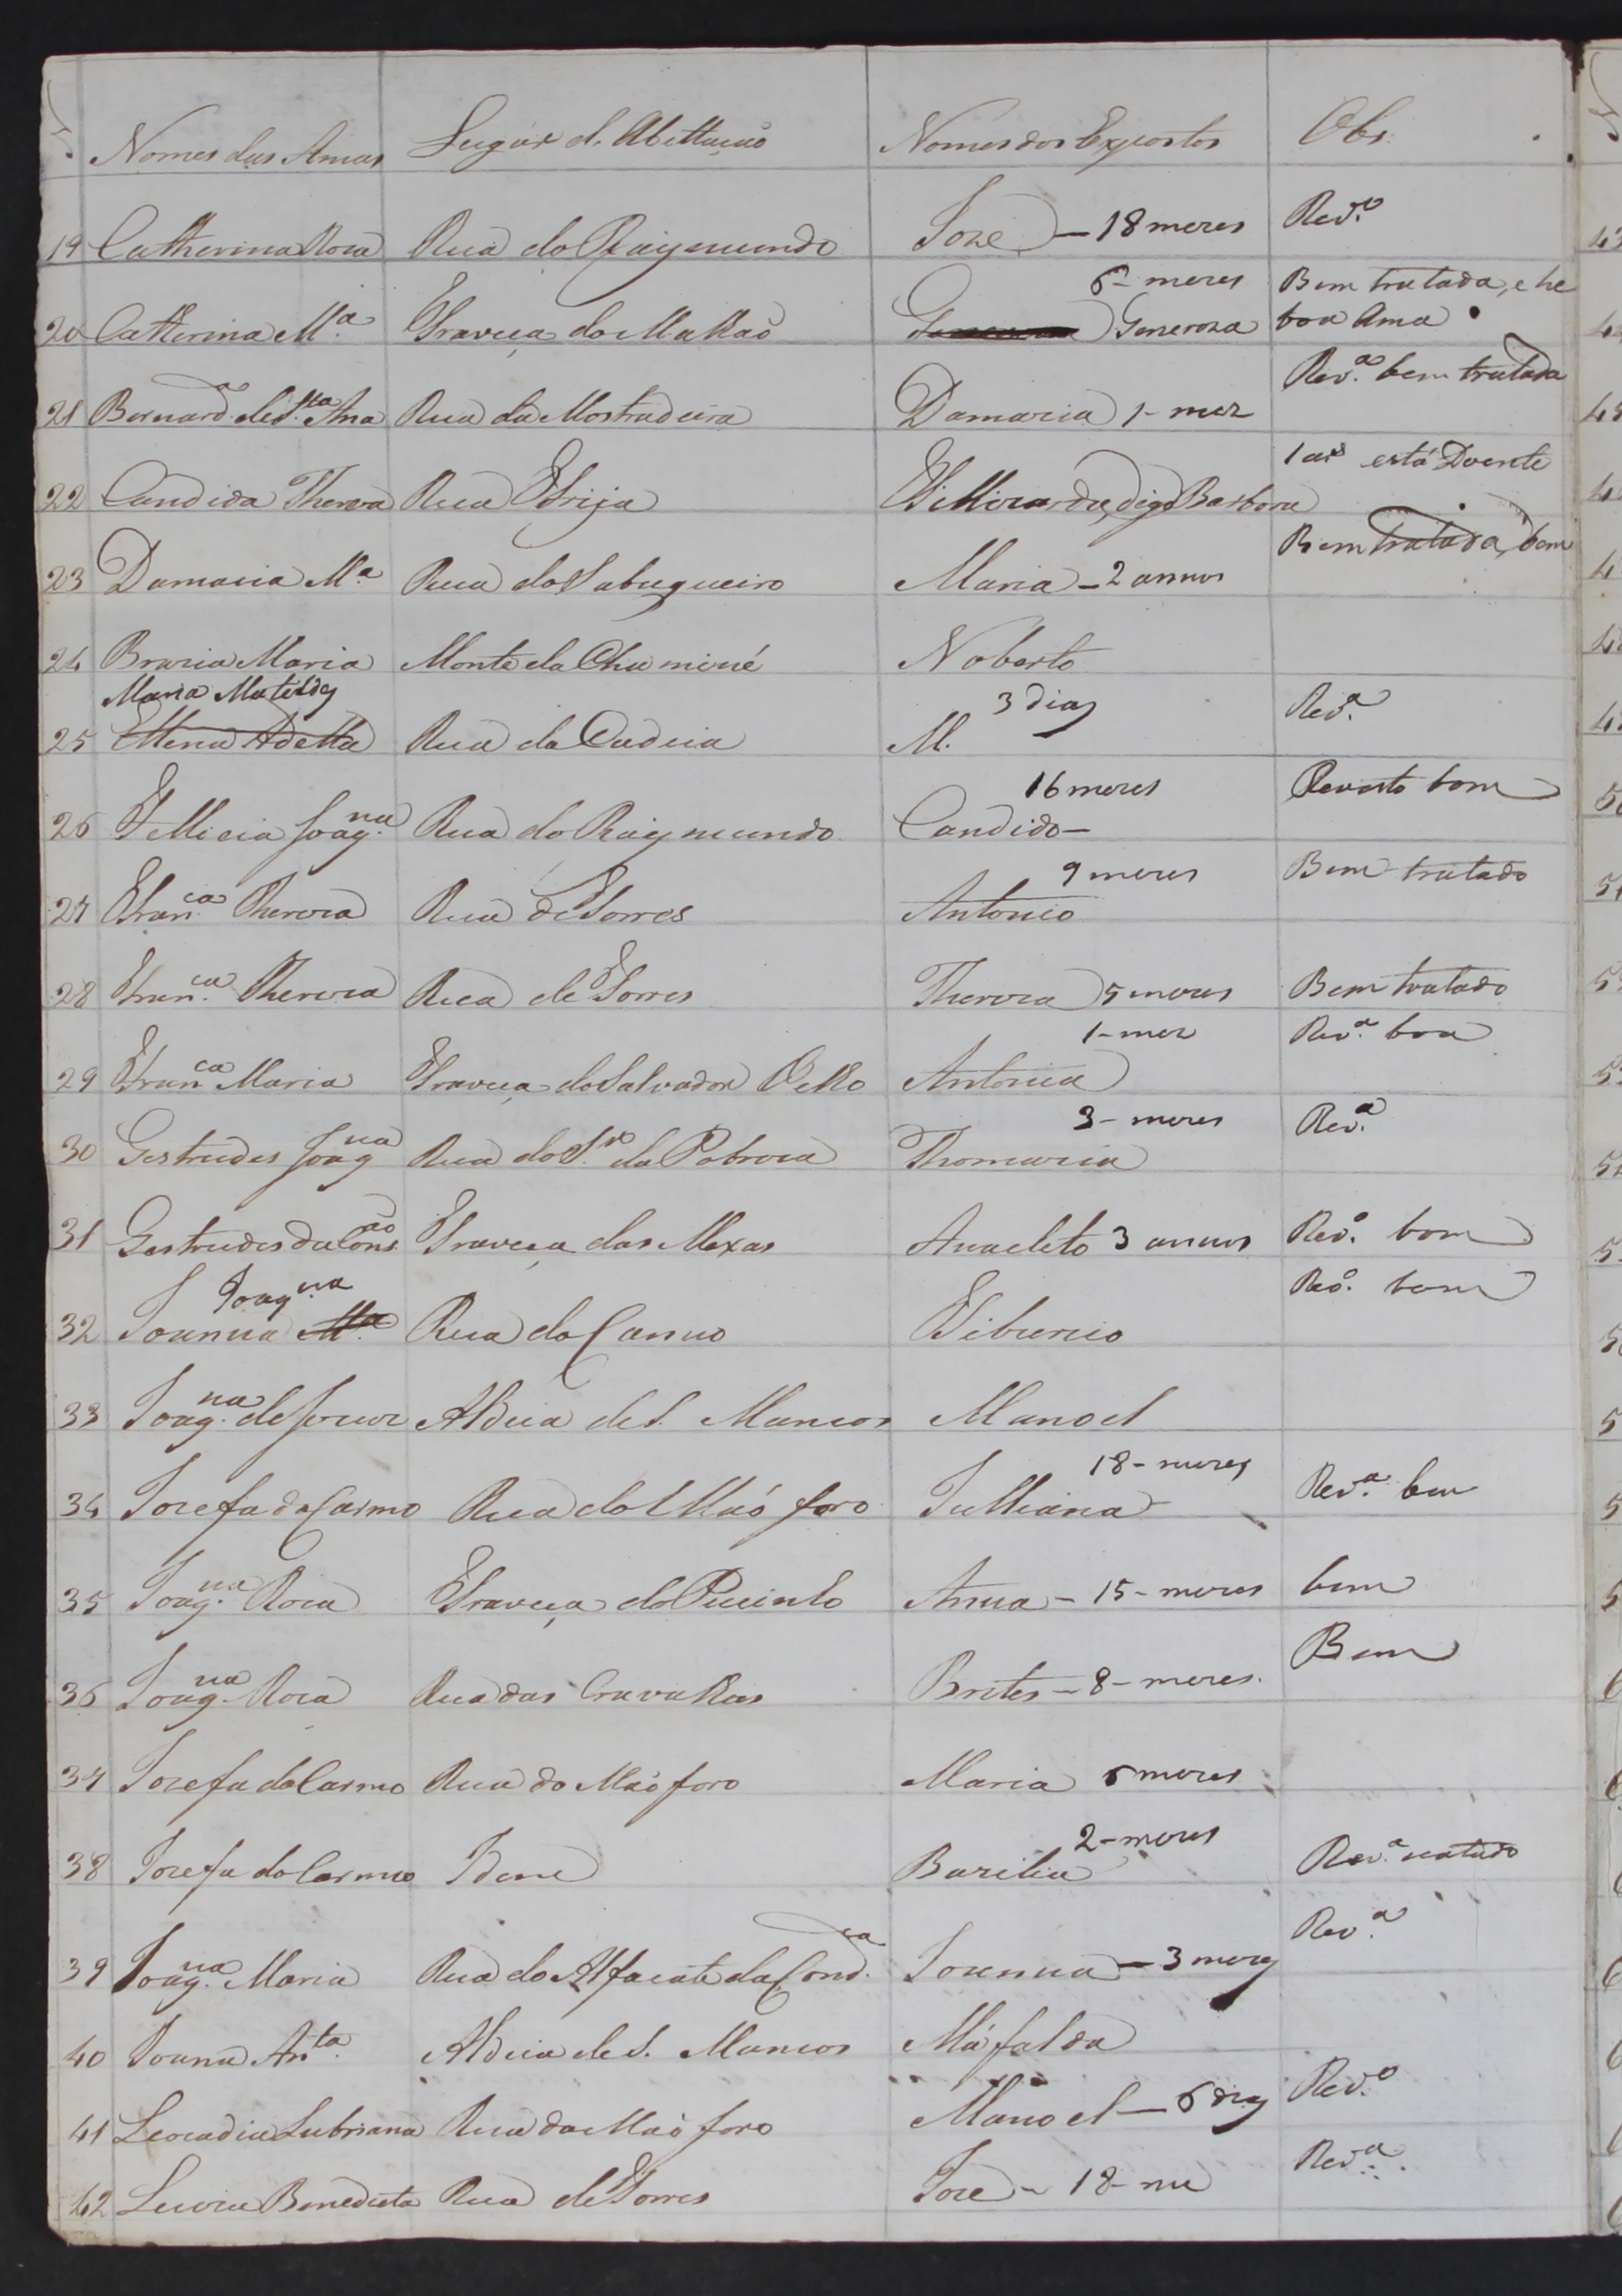 Nº Nomes das Amas Lugar d. Abittação Nomes dos Expostos Obs.
19 Catherina Roza Rua do Raymundo Joze — 18 mezes Revº
20 Catherina Mª Traveça do Malhaõ Generoza 6 - mezes Bem tratada, e he
boa Ama
21 Bernardª de Sta Ana Rua da Mostradeira Damazia 1 - mez Revª bem tratada
22 Candida Thereza Rua Frija digo Barbora está Doente
23 Damazia Mª Rua do Sabugueiro Maria - 2 annos Bem tratada, bem
24 Brazia Maria Monte da Chaminé Noberto
Maria Matildes
25 Ellena Adella Rua da Cadeia M. 3 dias Revª
26 Fellicia Joaqna Rua do Raymundo Candido - 16 mezes Revisto bom
27 Franca Thereza Rua de Torres Antonio 9 mezes Bem tratado
28 Franca Thereza Rua de Torres Thereza 5 mezes Bem tratado
29 Franca Maria Traveça do Salvador Velho Antonia 1 - mez Revª boa
30 Gertrudes Joaqna Rua do Sr da Pobreza Thomazia 3 - mezes Revª
31 Gertrudes da Consão Traveça das Moxas Anacleto 3 annos Revº bom
Joaqna
32 Joanna Mª Rua do Canno Tiburcio Revº bom
33 Joaqna de Jezuz Aldeia de S. Mancos Manoel
34 Jozefa do Carmo Rua do Maó foro Julliana 18 - mezes Revª bem
35 Joaqna Roza Traveça do Pecinlo Anna - 15 - mezes bem
36 Joaqna Roza Rua das Cravalhas Brites - 8 - mezes. Bem
37 Jozefa do Carmo Rua do Maó foro Maria 6 mezes
38 Jozefa do Carmo Idem Bazilia 2 - mezes Revª
39 Joaqna Maria Rua do Alfacate da Condca Joanna — 3 mezes Revª
40 Joana Anta Aldeia de S. Mancos Máfalda
41 Leocadia Lubriana Rua do Maó foro Manoel — 6 dias Revº
42 Luzia Benedicta Rua de Torres Joze - 18 - me Revª